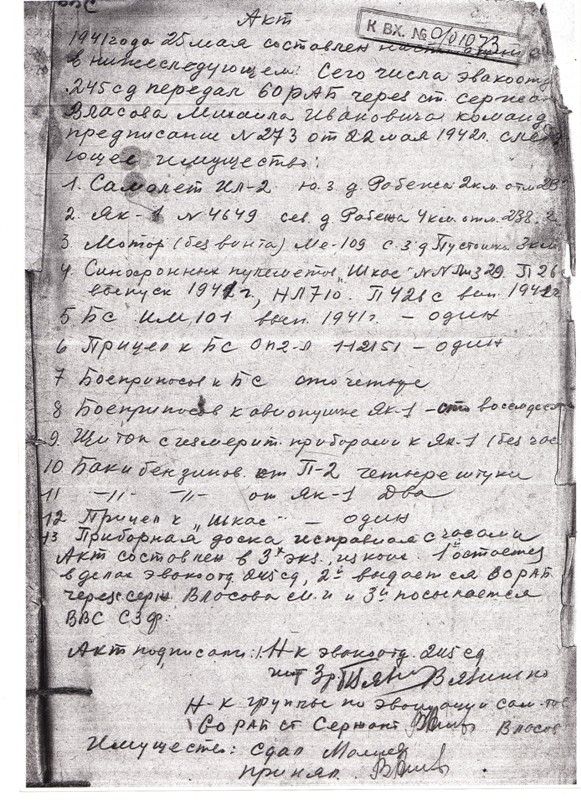 ВВС
К ВХ. № 0/01073
Акт
1941 года 25 мая составлен наст
в нижеследующем: Сего числа эвакоотд
245 сд передал 60 РАБ через ст. сержан
Власова Михаила Ивановича команд
предписание № 273 от 22 мая 1942 г. след
ющее имущество:
1. Самолет Ил-2 ю. з. д. Рабежа 2 км. отм.
2. Як-1 N 4649 сев. д. Рабежа 4 км. отм. 238.2
3 Мотор (без винта) Ме-109 с. з. д Пустошка 3 км
4 Синхронных пулеметов "Шкас" NN 
выпуск 1941 г, НЛ 710. П 426 с вып. 1941 г
5 БС ИМ 101 вып. 1941 г. - один
6 Прицел к БС ОП2-Л 112151 - один
7 Боеприпасов к БС сто четыре
8 Боеприпасов к авиопушке Як-1 - сто восемдесят
9 Щиток с измерит. приборами к Як-1 (без час
10 Баки бензинов. от П-2 четыре штуки
11 -"- -"- от Як-1 Два
12 Прицел к "Шкас" - один
13 Приборная доска исправная с часами
Акт составлен в 3х экз., из коих 1й остается
в делах эвакоотд 245 сд, 2й выдается 60 РАБ
через серж Власова М. И и 3й посылается
ВВС СЗФ.
Акт подписали: 1. Н-к эвакоотд. 245 сд
Н-к группы по эвакуации сам-тов
60 РАБ ст Сержант Власов
Имущество: сдал
принял